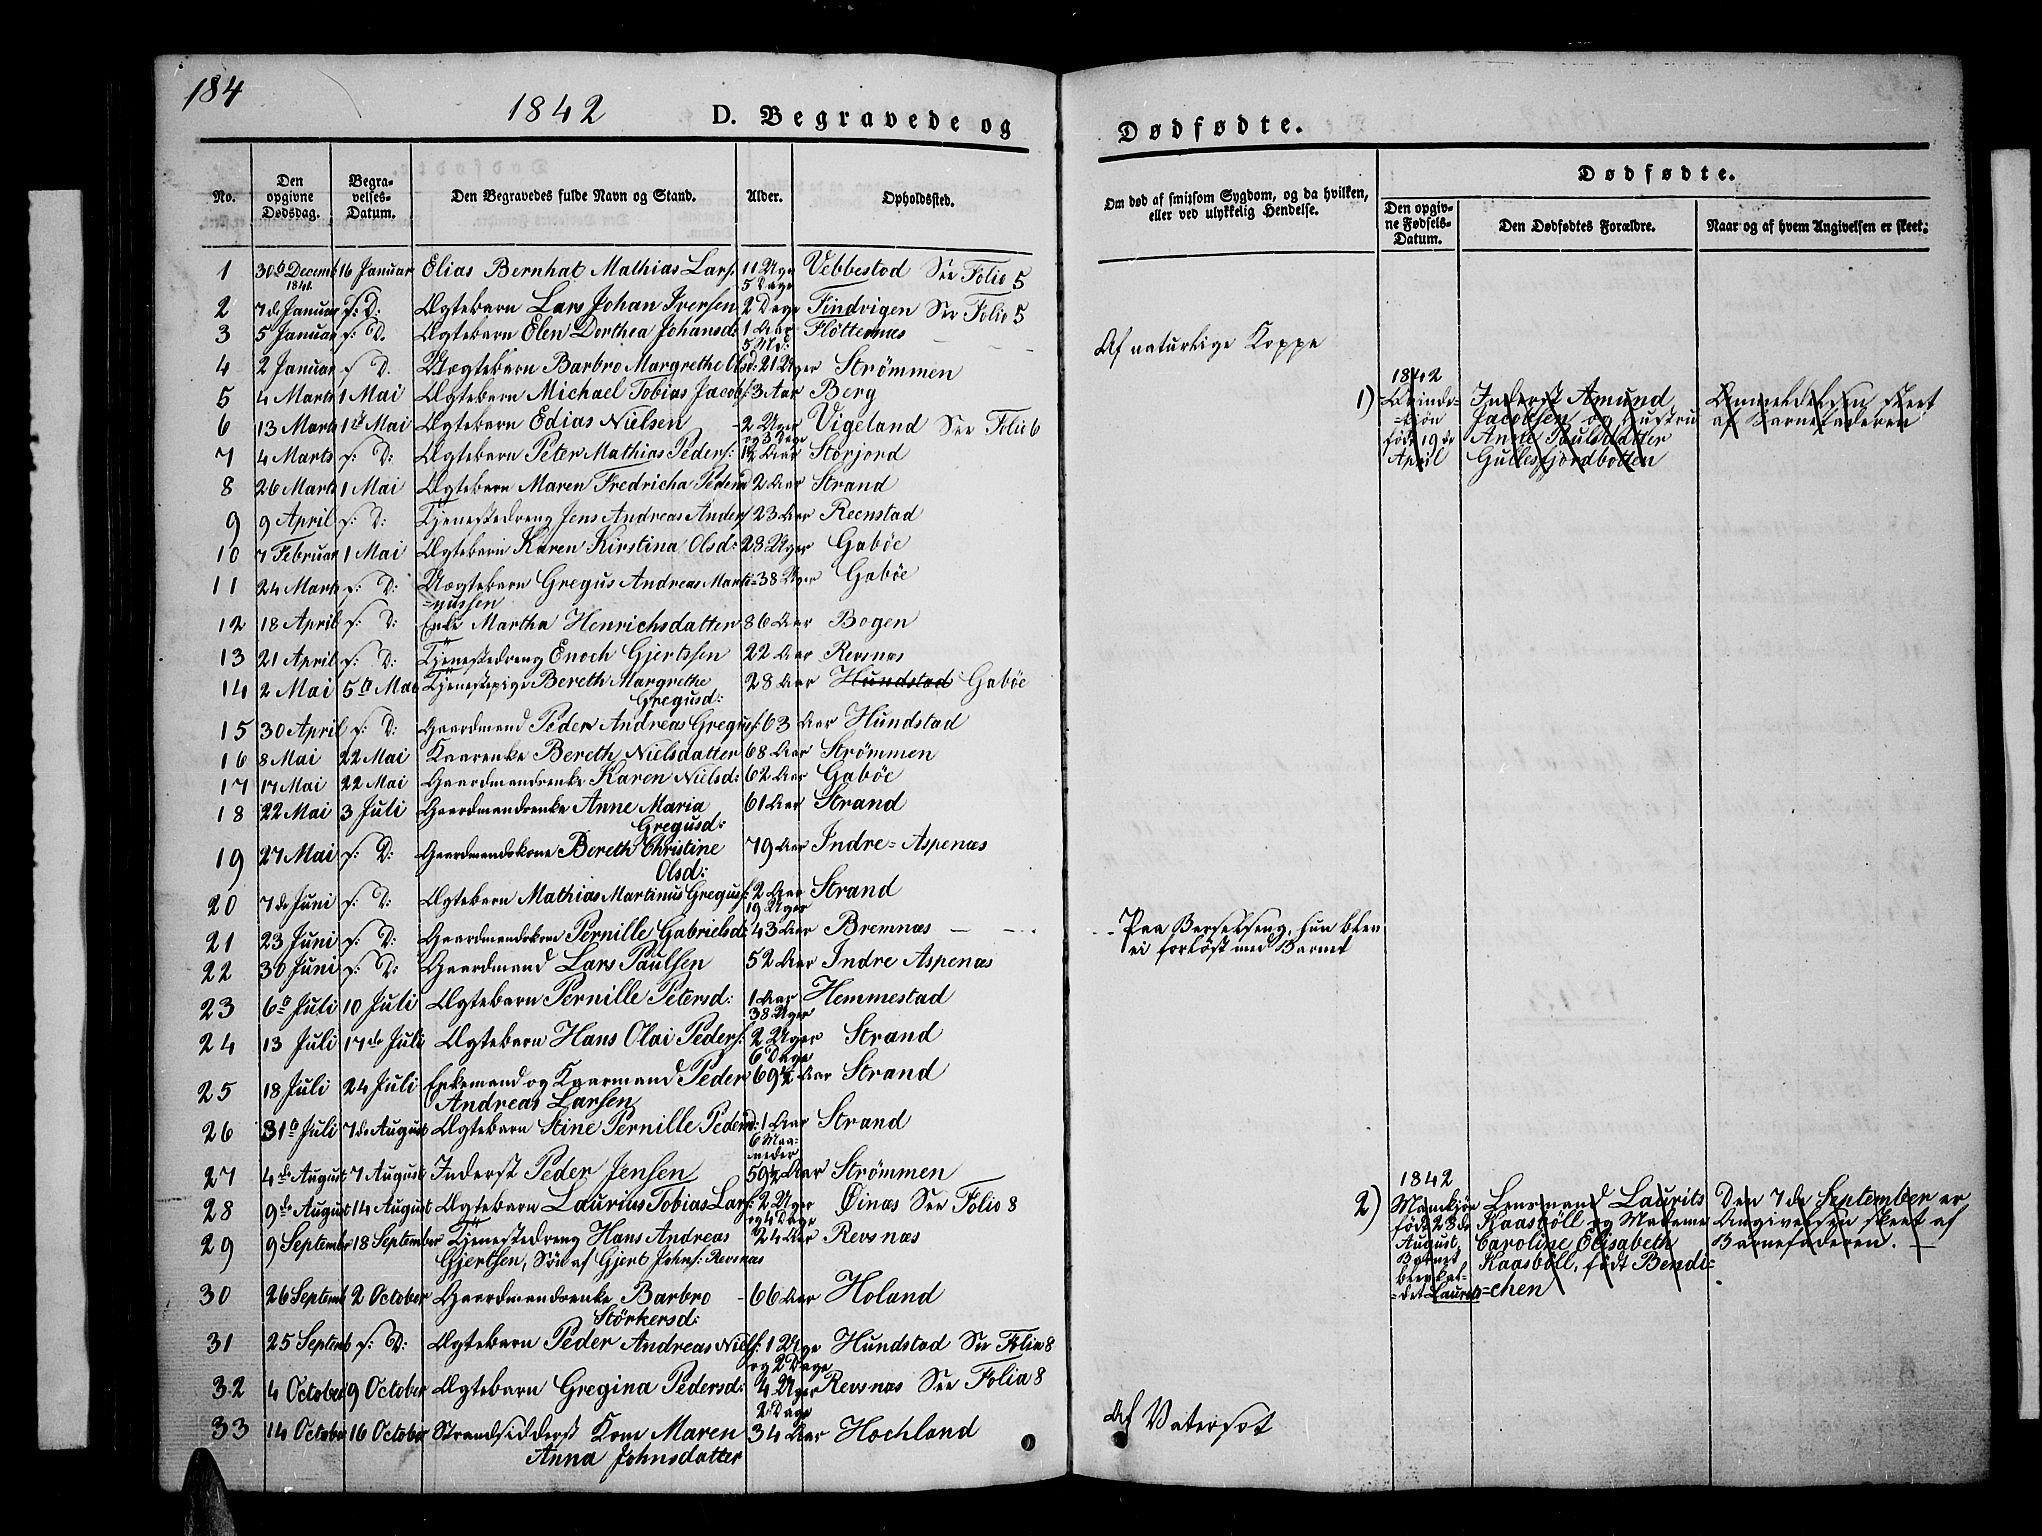 184
1842 D. Begravede og Dødfødte.
No. Den opgivne Dødsdag. Begravelses-Datum. Den Begravedes fulde Navn og Stand. Alder. Opholdssted.
Om død af smitsom Sygdom, og da hvilken, eller ved ulykkelig Hendelse.
Dødfødte.
Den opgivne Fødsels-Datum. Den Dødfødtes Forældre. Naar og af hvem Angivelsen er skeet.
1 30te Decemb 1841. 16 Januar Elias Bernhat Mathias Lars: 11 Uge 5 Dage Vebbestad See Folio 5
2 7de Januar s: D: Ægtebarn Lars Johan Iversen 2 Dage Findvigen See Folio 5
3 5 Januar s: D. Ægtebarn Elen Dorthea Johansd: 1 Aar 5 Md: Fløttenæs Af naturlige Koppe
4 2 Januar s D. Uægtebarn Barbro Margrethe Olsd: 21 Uger Strømmen
5 4 Marts 1 Mai Ægtebarn Michael Tobias Jacobs: 3 Aar Berg
6 13 Marts 1te Mai Ægtebarn Edias Nielsen 2 Uger og 3 Dage Vigeland See Folio 6
7 4 Marts s: D: Ægtebarn Peter Mathias Peders: 12 Aar Storjord
8 26 Marts 1 Mai Ægtebarn Maren Fredricha Pedersd 2 Aar Strand
9 9 April s: D: Tjenestedreng Jens Andreas Anders 23 Aar Reenstad
10 7 Februar 1 Mai Ægtebarn Karen Kirstina Olsd: 28 Uger Gabøe
11 24 Marts s: D: Uægtebarn Gregus Andreas Marti=
=nussen 38 Uger Gabøe
12 18 April s: D: Enke Martha Henrichsdatter 86 Aar Bogen
13 21 April s: D: Tjenestedreng Enoch Gjertssen 22 Aar Revsnæs
14 2 Mai 5te Mai Tjenestepige Bereth Margrethe
Gregusd: 28 Aar Hundstad Gabøe
15 30 April s: D: Gaardmand Peder Andreas Gregus: 63 Aar Hundstad
16 8 Mai 22 Mai Kaarenke Bereth Nielsdatter 68 Aar Strømmen
17 17 Mai 22 Mai Gaardmandsenke Karen Nielsd: 62 Aar Gabøe
18 22 Mai 3 Juli Gaardmandsenke Anne Maria
Gregusd: 61 Aar Strand
19 27 Mai s: D: Gaardmandskone Bereth Christine
Olsd: 79 Aar Indre=Aspenæs
20 7de Juni s: D: Ægtebarn Mathias Martinus Gregus: 2 Aar 19 Uger Strand
21 23 Juni s: D: Gaardmandskone Pernille Gabrielsd: 43 Aar Bremnæs Paa Barselseng, hun blev
ei forløst med Barnet
22 30 Juni s: D: Gaardmand Lars Paulsen 52 Aar Indre Aspenæs
23 6te Juli 10 Juli Ægtebarn Pernille Petersd: 1 Aar 38 Uger Hemmestad
24 13 Juli 17de Juli Ægtebarn Hans Olai Peders: 2 Uger 6 Dage Strand
25 18 Juli 24 Juli Enkemand og Kaarmand Peder
Andreas Larsen 69½ Aar Strand
26 31te Juli 7de August Ægtebarn Stine Pernille Pedersd: 1 Aar 6 Maaneder Strand
27 4de August 7 August Inderst Peder Jensen 59½ Aar Strømmen
28 9de August 14 August Ægtebarn Laurius Tobias Lars: 2 Uger og 4 Dage Øinæs See Folio 8
29 9 Septembr 18 September Tjenestedreng Hans Andreas
Gjertsen, Søn af Gjert Johns: Revsnæs 24 Aar Revsnæs
30 26 Septemb 2 October Gaardmandsenke Barbro
Størkersd: 66 Aar Holand
31 25 Septemb s: D: Ægtebarn Peder Andreas Niels: 1 Uge og 2 Dage Hundstad See Folia 8
32 4 October 9 October Ægtebarn Gregina Pedersd: 4 Uger 2 Dage Revsnæs See Folia 8
33 14 Octobr 16 October Strandsidderst Kone Maren
Anna Johnsdatter 34 Aar Hochland Af Vatersot
1842
1) Qvinde=
=kjøn
født 19de
April
Inderst Amund
Jacobsen og Hustru
Anne Paulsdatter
Gullesfjordbotten
Anmeldelsen skeet
af Barnefaderen
1842
2) Mandkjøn
født 28de
August,
Barnet
blev kal=
=det Laurits
Lensmand Laurits
Kaasbøll og Madame
Caroline Elisabeth
Kaasbøll, født Bendi=
=chen
Den 7de September er
Angivelsen skeet af
Barnefaderen.